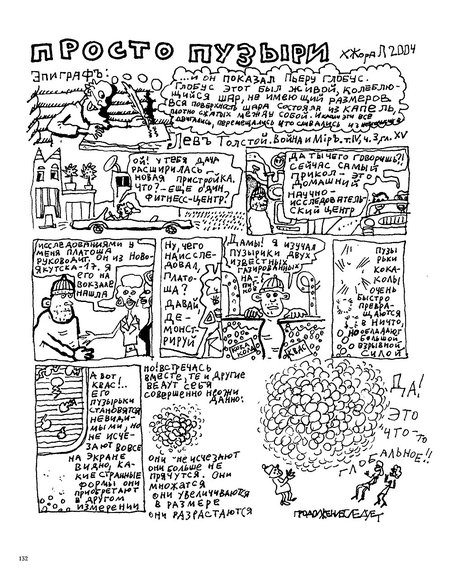 ПРОСТО ПУЗЫРИ
ХЖОРА Л 2004
ЭПИГРАФЪ:
...И ОН ПОКАЗАЛ ПЬЕРУ ГЛОБУС.
ГЛОБУС ЭТОТ БЫЛ ЖИВОЙ, КОЛЕБЛЮ-
ЩИЙСЯ ШАР, НЕ ИМЕЮЩИЙ РАЗМЕРОВ.
ВСЯ ПОВЕРХНОСТЬ ШАРА СОСТОЯЛА ИЗ КАПЕЛЬ,
ПЛОТНО СЖАТЫХ МЕЖДУ СОБОЙ.
ДВИГАЛИСЬ, ПЕРЕМЕЩАЛИСЬ
ЛЕВ ТОЛСТОЙ. ВОЙНА И МІРЪ. Т.IV, Ч.3, ГЛ. XV
ОЙ! У ТЕБЯ ДАЧА
РАСШИРИЛАСЬ –
НОВАЯ ПРИСТРОЙКА,
ЧТО? – ЕЩЕ ОДИН
ФИТНЕСС-ЦЕНТР?
ДА ТЫ ЧЕГО ГОВОРИШЬ?!
СЕЙЧАС САМЫЙ
ПРИКОЛ – ЭТО
ДОМАШНИЙ
НАУЧНО –
ИССЛЕДОВАТЕЛЬ
СКИЙ ЦЕНТР
ИССЛЕДОВАНИЯМИ У
МЕНЯ ПЛАТОША
РУКОВОДИТ, ОН ИЗ НОВО-
ЯКУТСКА-17. Я
ЕГО НА
ВОКЗАЛЕ
НАШЛА
НУ, ЧЕГО
НАИССЛЕ-
ДОВАЛ,
ПЛАТО-
ША?
ДАВАЙ
ДЕ-
МОНСТ-
РИРУЙ
ДАМЫ! Я ИЗУЧАЛ
ПУЗЫРЬКИ ДВУХ
ИЗВЕСТНЫХ
ГАЗИРОВАННЫХ
КОКА
КОЛА
КВАС
ПУЗЫ
РЬКИ
КОКА-
КОЛЫ
ОЧЕНЬ
БЫСТРО
ПРЕВРА-
ЩАЮТСЯ
В НИЧТО,
НО ОБЛАДАЮТ
БОЛЬШОЙ
ВЗРЫВНОЙ
СИЛОЙ
А ВОТ
КВАС!..
ЕГО
ПУЗЫРЬКИ
СТАНОВЯТСЯ
НЕВИДИ-
МЫМИ, НО
НЕ ИСЧЕ-
ЗАЮТ ВОВСЕ
НА ЭКРАНЕ
ВИДНО, КА-
КИЕ СТРАННЫЕ
ФОРМЫ ОНИ
ПРИОБРЕТАЮТ
В ДРУГОМ
ИЗМЕРЕНИИ
НО! ВСТРЕЧАСЬ
ВМЕСТЕ, ТЕ И ДРУГИЕ
ВЕДУТ СЕБЯ
СОВЕРШЕННО НЕОЖИ
ДАННО:
ОНИ НЕ ИСЧЕЗАЮТ
ОНИ БОЛЬШЕ НЕ
ПРЯЧУТСЯ. ОНИ
МНОЖАТСЯ
ОНИ УВЕЛИЧИВАЮТСЯ
В РАЗМЕРЕ
ОНИ РАЗРАСТАЮТСЯ
ДА!
ЭТО
ЧТО-ТО
ГЛОБАЛЬНОЕ!!
132